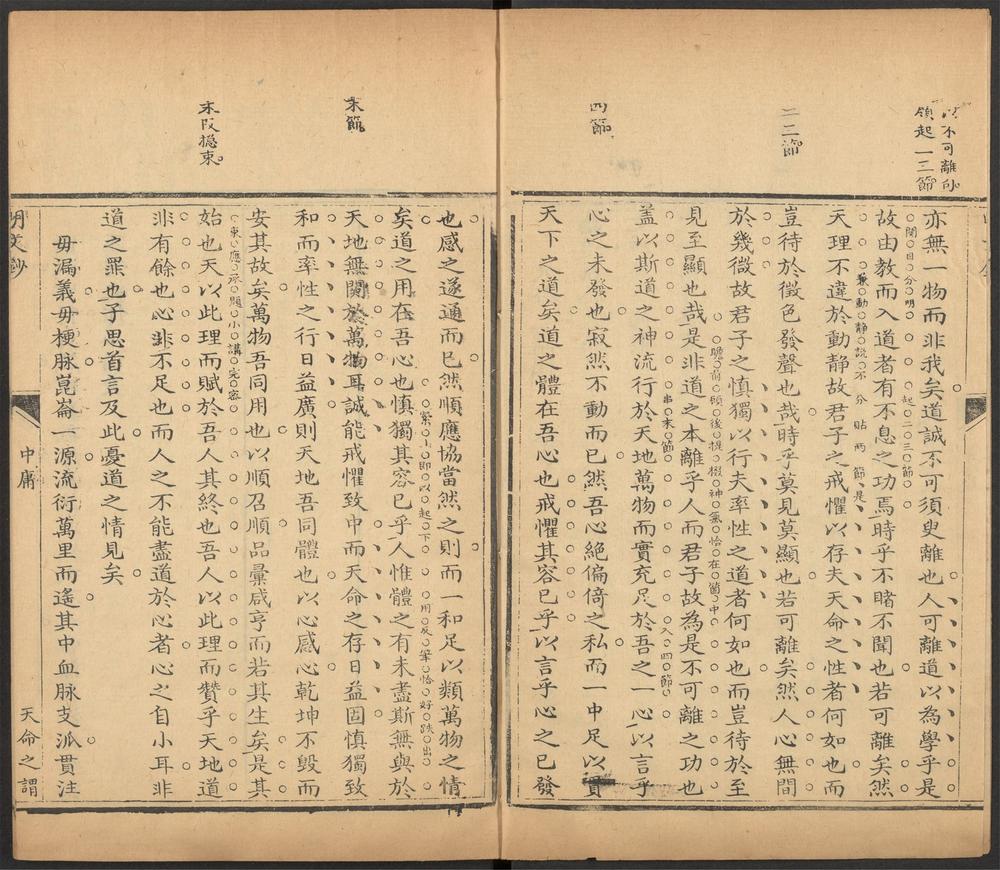 以不可離句
領起一二節
二三節
四節
亦無一物而非我矣道誠不可須臾離也人可離道以為學乎是
開目分明
起二三節
故由教而入道者有不息之功焉時乎不睹不聞也若可離矣然
兼動靜說不分貼兩節是
天理不違於動靜故君子之戒懼以存夫天命之性者何如也而
豈待於徵色發聲也哉時乎莫見莫顯也若可離矣然人心無間
於幾微故君子之慎獨以行夫率性之道者何如也而豈待於至
瞻前顧後提掇神氣恰在箇中
見至顯也哉是非道之本離乎人而君子故為是不可離之功也
串末節
入四節
蓋以斯道之神流行於天地萬物而實充足於吾之一心以言乎
心之未發也寂然不動而已然吾心絕偏倚之私而一中足以
天下之道矣道之體在吾心也戒懼其容已乎以言乎心之已發
末節
末段總束
也感之遂通而已然順應協當然之則而一和足以類萬物之情
繁小即以起下
用反筆恰好跌出
矣道之用在吾心也慎獨其容已乎人惟體之有未盡斯無與於
天地無關於萬物耳誠能戒懼致中而天命之存日益固慎獨致
和而率性之行日益廣則天地吾同體也以心感心乾坤不毀而
安其故矣萬物吾同用也以順召順品彙咸亨而若其生矣是其
束應承題小講完密
始也天以此理而賦於吾人其終也吾人以此理而贊乎天地道
非有餘也心非不足也而人之不能盡道於心者心之自小耳非
道之罪也子思首言及此憂道之情見矣
毋漏義毋梗脉崑崙一源流衍萬里而遙其中血脉支派貫注
明文鈔
中庸
天命之謂